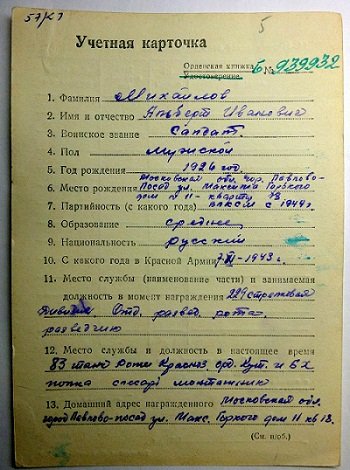 57/К1
5
Учетная карточка
Орденская книжка
Удостоверение Б № 939932
1. Фамилия Михайлов
2. Имя и отчество Альберт Иванович
3. Воинское звание Солдат.
4. Пол мужской
5. Год рождения 1926 год
Московская обл. гор. Павлово-
6. Место рождения Посад ул. Максима Горького
дом № 11 - квартир 13
7. Партийность (с какого года) ВЛКСМ с 1944 г.
8. Образование среднее,
9. Национальность русский
10. С какого года в Красной Армии 1943 г.
11. Место службы (наименование части) и занимаемая
должность в момент награждения 229 стрелковая
дивизия. Отд. развед рота.
разведчик
12. Место службы и должность в настоящее время
83 танко
полка слесарь монтажник
13. Домашний адрес награжденного Московская обл.
город Павлово-посад ул. Макс. Горького дом 11 кв 13.
(См. на об.)